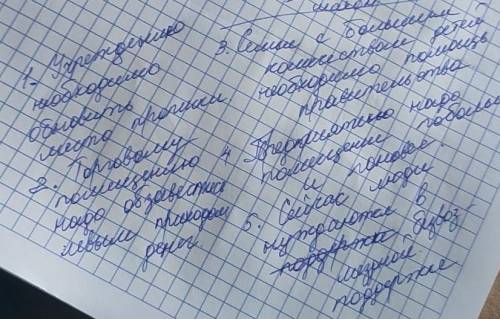 1. Учреждению
необходимо
обновить
места прописки.
2. Торговому
помещению
надо обзавестись
левым приходом
денег.
3. Семьи с большим
количеством детей
необходимо помощь
правительства
4. Предприятию надо
помещение побольше
и поновее.
5. Сейчас люди
нуждаются в
поддержке безвоз-
мездной
поддержке